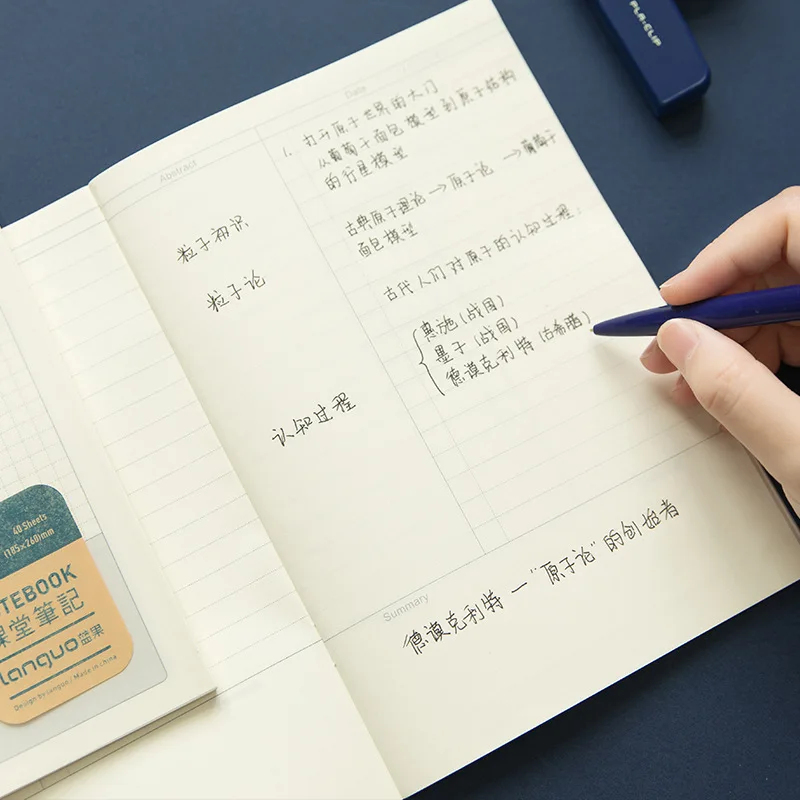 PLA-CLIP
Date
1. 打开原子世界的大门
从葡萄干面包模型到原子结构
的行星模型
古典原子理论→原子论→葡萄干
面包模型
古代人们对原子的认知过程:
惠施(战国)
墨子(战国)
德谟克利特(古希腊)
Abstract
粒子初识
粒子论
认知过程
Summary
德谟克利特—“原子论”的创始者
40 Sheets
(185×260)mm
NOTEBOOK
課堂筆記
languo蓝果
Design by languo / Made in china